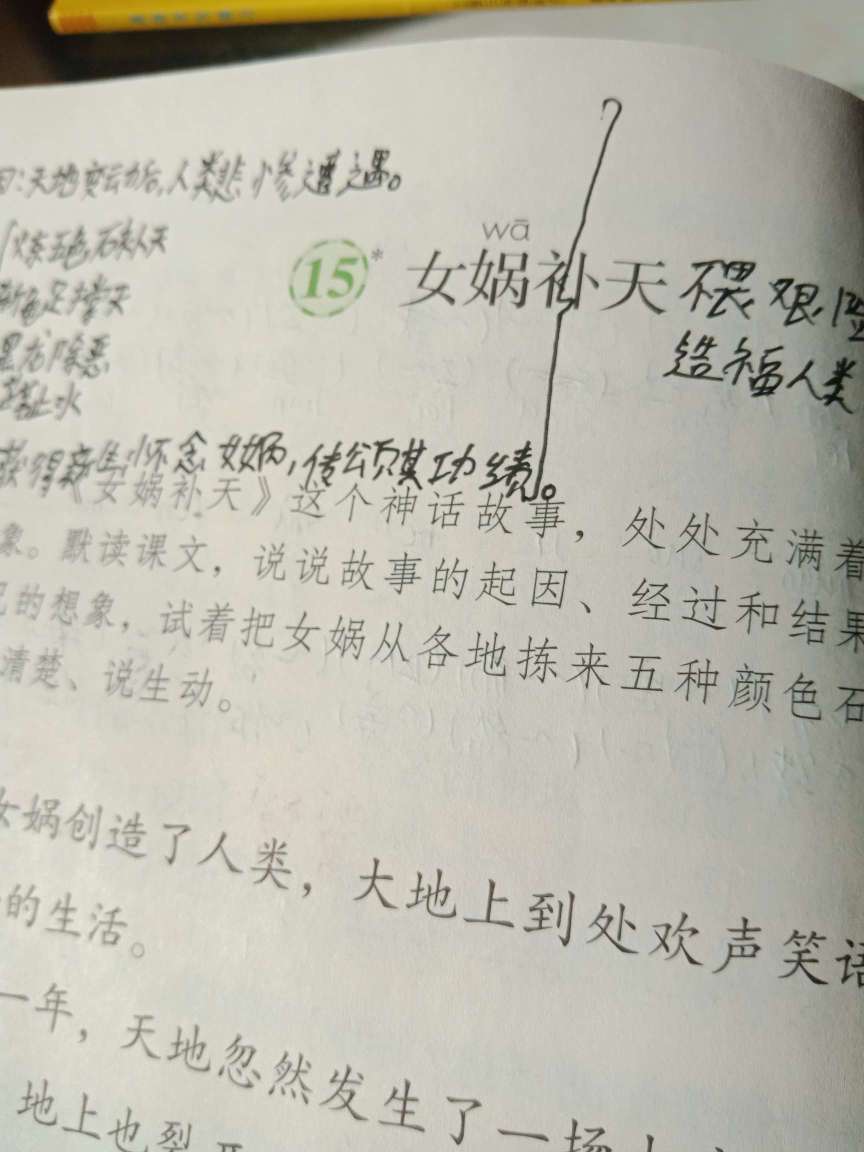 因:天地变动后,人类悲惨遭遇。
炼五色石补天
斩龟足撑天
黑龙除恶
止水
wā
15* 女娲补天 不畏艰险
造福人类
获得新生,怀念女娲,传颂其功绩。
《女娲补天》这个神话故事,处处充满着
象。默读课文,说说故事的起因、经过和结果
的想象,试着把女娲从各地拣来五种颜色石
清楚、说生动。
女娲创造了人类,大地上到处欢声笑语
的生活。
一年,天地忽然发生了一场
地上也裂开